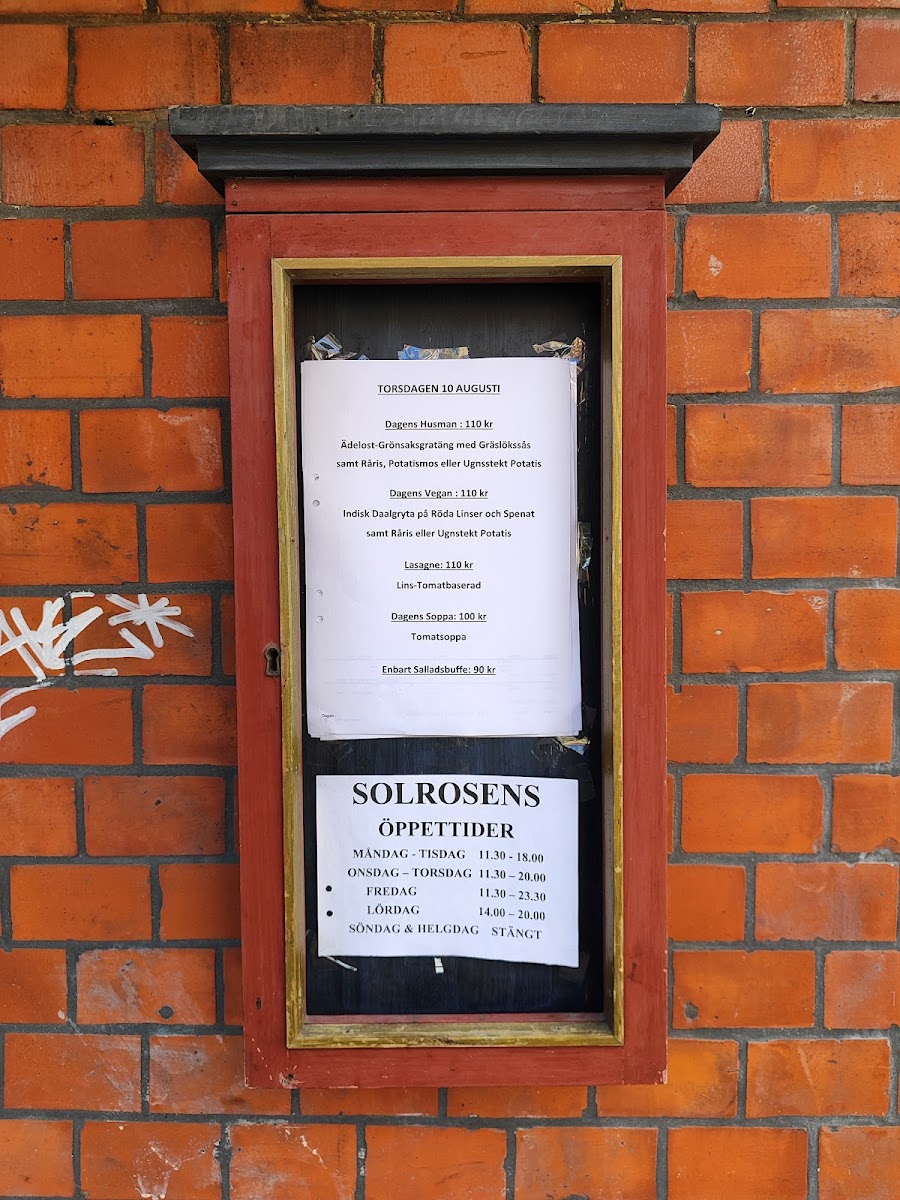 TORSDAGEN 10 AUGUSTI
Dagens Husman : 110 kr
Ädelost-Grönsaksgratäng med Gräslökssås
samt Råris, Potatismos eller Ugnsstekt Potatis
Dagens Vegan : 110 kr
Indisk Daalgryta på Röda Linser och Spenat
samt Råris eller Ugnstekt Potatis
Lasagne: 110 kr
Lins-Tomatbaserad
Dagens Soppa: 100 kr
Tomatsoppa
Enbart Salladsbuffe: 90 kr
Dagen
SOLROSENS
ÖPPETTIDER
MÅNDAG - TISDAG 11.30 - 18.00
ONSDAG – TORSDAG 11.30 – 20.00
FREDAG 11.30 – 23.30
LÖRDAG 14.00 – 20.00
SÖNDAG & HELGDAG STÄNGT